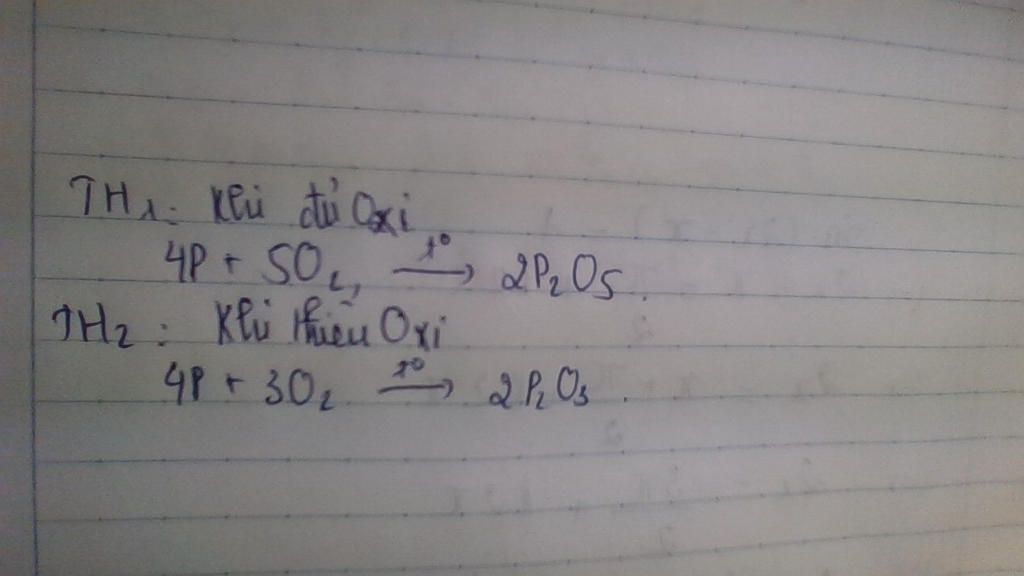 TH1: Khi đủ Oxi
4P + 5O2, t° → 2P2O5.
TH2: Khi thiếu Oxi
4P + 3O2 t° → 2P2O3.